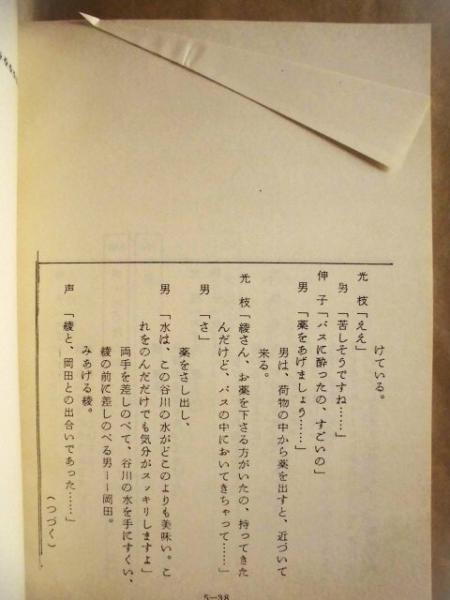 けている。
光枝「ええ」
男「苦しそうですね……」
伸子「バスに酔ったの、すごいの」
男「薬をあげましょう……」
男は、荷物の中から薬を出すと、近づいて
来る。
光枝「綾さん、お薬を下さる方がいたの、持ってきた
んだけど、バスの中においてきちゃって……」
男「さ」
薬をさし出し、
男「水は、この谷川の水がどこのよりも美味い。こ
れをのんだだけでも気分がスッキリしますよ」
両手を差しのべて、谷川の水を手にすくい、
綾の前に差しのべる男――岡田。
みあげる綾。
声「綾と、岡田との出合いであった……」
（つづく）
5—38